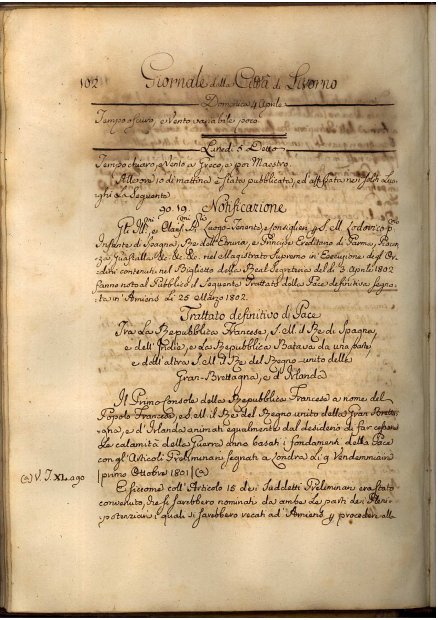 102 Giornale della Città di Livorno
Domenica 4 Aprile
Tempo oscuro, e Vento variabile poco
Lunedì 5 Detto
Tempo chiaro, e Vento a Greco, e poi Maestro.
Alle ore 10 di mattina è stata pubblicata, ed affissata nei soliti luo-
ghi la Seguente
90. 19. Notificazione
Gl' Ill.mi Luogo-Tenente, e Consiglieri di S. M. Lodovico p.mo
Infante di Spagna, Re dell'Etruria, e Principe Ereditario di Parma, Piacen-
za, Guastalla &c. &c. &c. nel Magistrato Supremo in Esecuzione degl'Or-
dini contenuti nel Biglietto della Real Segreteria del dì 3 Aprile 1802
fanno noto al Pubblico il Seguente Trattato della Pace definitiva segna-
ta in Amiens il 25 Marzo 1802.
Trattato definitivo di Pace
Tra La Repubblica Francese, S. M. il Re di Spagna,
e dell'Indie, e La Repubblica Batava da una parte,
e dall'altra S. M. il Re del Regno-unito della
Gran-Brettagna, e d'Irlanda
Il Primo Console della Repubblica Francese a nome del
Popolo Francese, e S. M. il Re del Regno unito della Gran Bretta-
gna, e d'Irlanda animati equalmente dal desiderio di far cessare
Le calamità della Guerra anno basati i fondamenti della Pace
con gl'Articoli Preliminari segnati a Londra il 9 Vendemmiaire
(a) V. T. XL. ago |primo Ottobre 1801| (a)
E siccome coll'Articolo 15 dei Suddetti Preliminari era stato
convenuto, che si sarebbero nominati da ambe le parti dei Pleni-
potenziari i quali si sarebbero recati ad Amiens p procedere alla